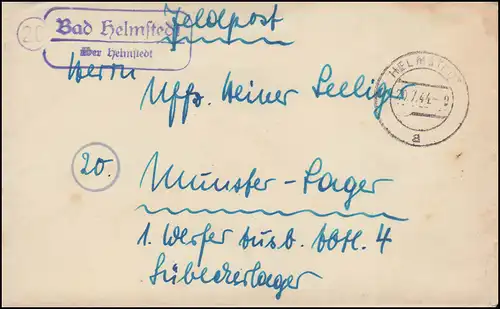 20
Bad Helmstedt
über Helmstedt
Feldpost
HELMSTEDT
.7.44.
a
Herrn
Uffz. Heiner Seeliger
20.
Munster-Lager
1. Werfer Ausb. Abtl. 4
Lübeckerlager